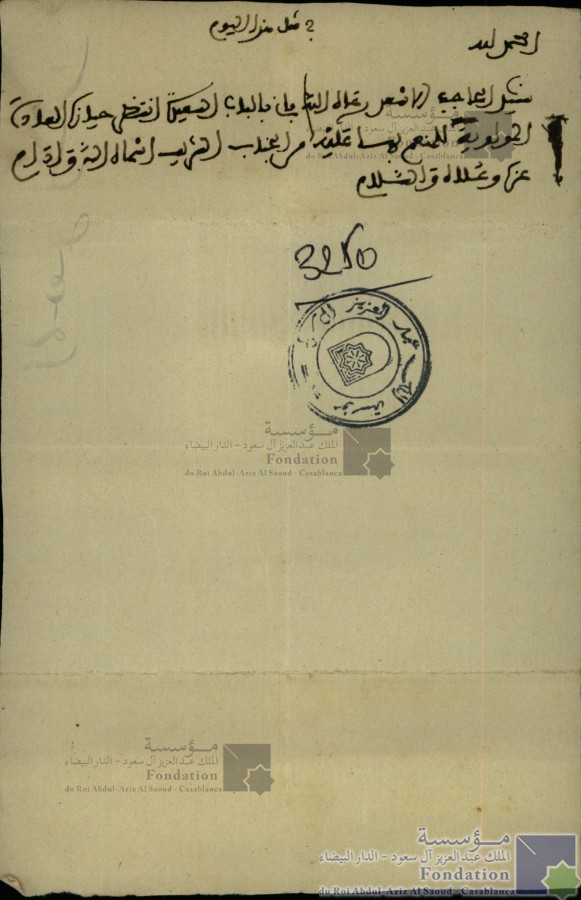 الحمد لله
في مثل هذا اليوم
سيدي الحاجب الاسعد رعاك الله فاني بالباب السعيد انتظر حيازة العادة
المولوية المنعم بها علينا من الجناب الشريف اسماه الله وادام
عزه وعلاه والسلام
3250
مؤسسة الملك عبد العزيز
مؤسسة
الملك عبد العزيز آل سعود - الدار البيضاء
Fondation
du Roi Abdul-Aziz Al Saoud - Casablanca
مؤسسة
الملك عبد العزيز آل سعود - الدار البيضاء
Fondation
du Roi Abdul-Aziz Al Saoud - Casablanca
مؤسسة
الملك عبد العزيز آل سعود - الدار البيضاء
Fondation
du Roi Abdul-Aziz Al Saoud - Casablanca
مؤسسة
الملك عبد العزيز آل سعود - الدار البيضاء
Fondation
du Roi Abdul-Aziz Al Saoud - Casablanca